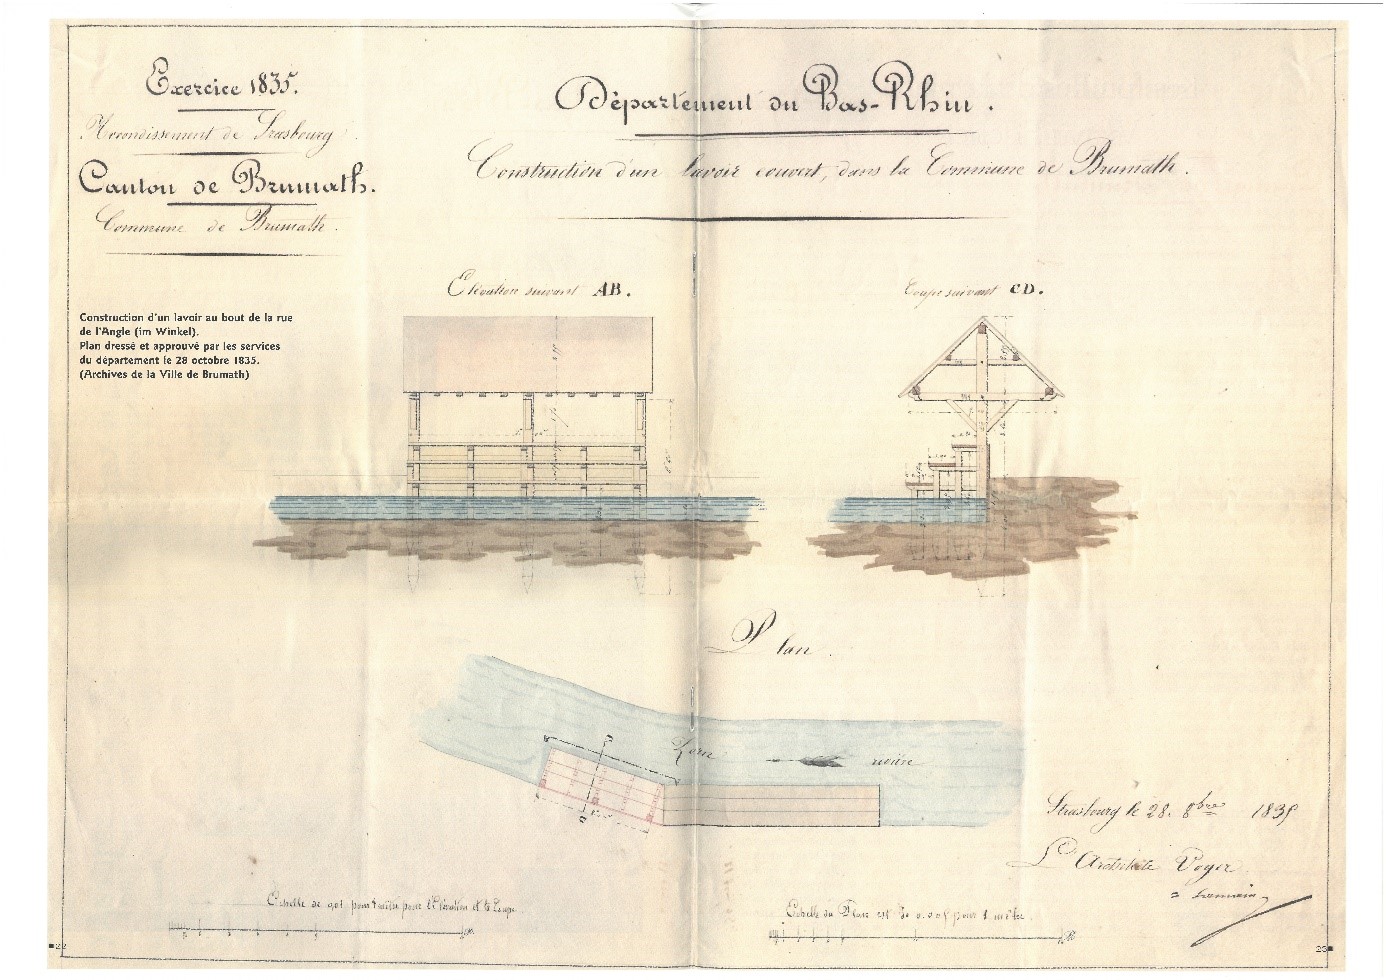 Exercice 1835.
Arrondissement de Strasbourg.
Canton de Brumath.
Commune de Brumath.
Département du Bas-Rhin.
Construction d'un lavoir couvert, dans la Commune de Brumath.
Construction d'un lavoir au bout de la rue
de l'Angle (im Winkel).
Plan dressé et approuvé par les services
du département le 28 octobre 1835.
(Archives de la Ville de Brumath)
Elévation suivant AB.
Coupe suivant CD.
Plan.
Zorn rivière
Strasbourg le 28. 8bre 1835
L'Architecte Voyer
Echelle de 0,01 pour 1 mètre pour l'Elévation et la Coupe.
Echelle du Plan est de 0.005 pour 1 mètre.
22
23